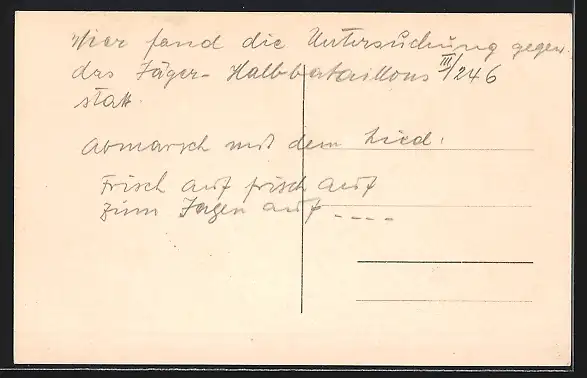 Hier fand die Untersuchung gegen
das Jäger-Halbbataillons III/246
statt.
Abmarsch mit dem Lied:
Frisch auf frisch auf
zum Jagen auf ----